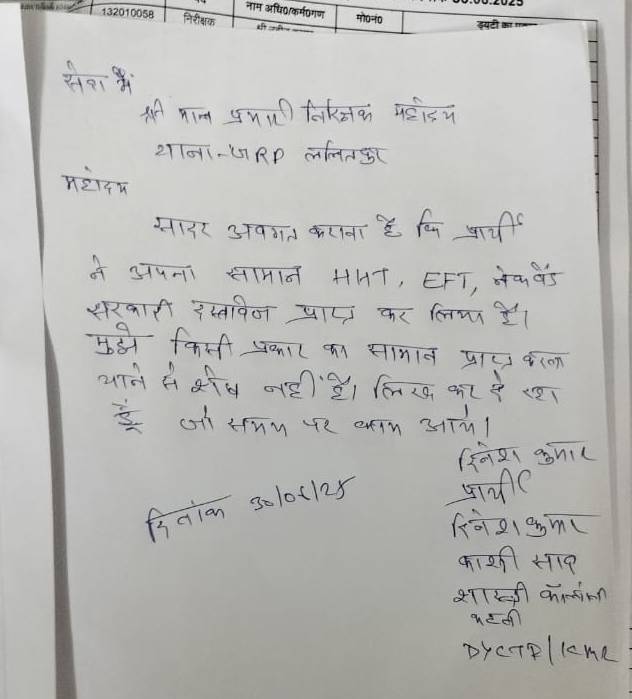 132010058 निरीक्षक नाम अधि०/कर्म०गण मो०नं० ड्यूटी का
सेवा में
श्री मान प्रभारी निरिक्षक महोदय
थाना-GRP ललितपुर
महोदय
सादर अवगत कराना है कि प्रार्थी
ने अपना सामान HHT, EFT, नेकवैंड
सरकारी दस्तावेज प्राप्त कर लिया है।
मुझे किसी प्रकार का सामान प्राप्त करना
थाने से शेष नहीं है। लिख कर दे रहा
हूँ जो समय पर काम आये।
दिनेश कुमार
प्रार्थी
दिनांक 30/06/25
दिनेश कुमार
शास्त्री कॉलोनी
कटनी
DYCTI/KMZ